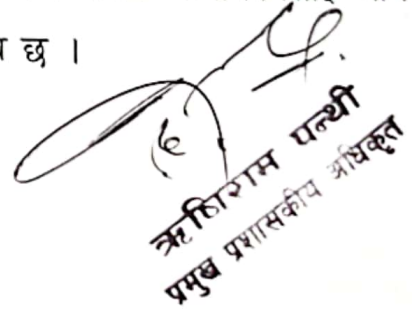 छ ।
ऋषिराम पन्थी
प्रमुख प्रशासकीय अधिकृत